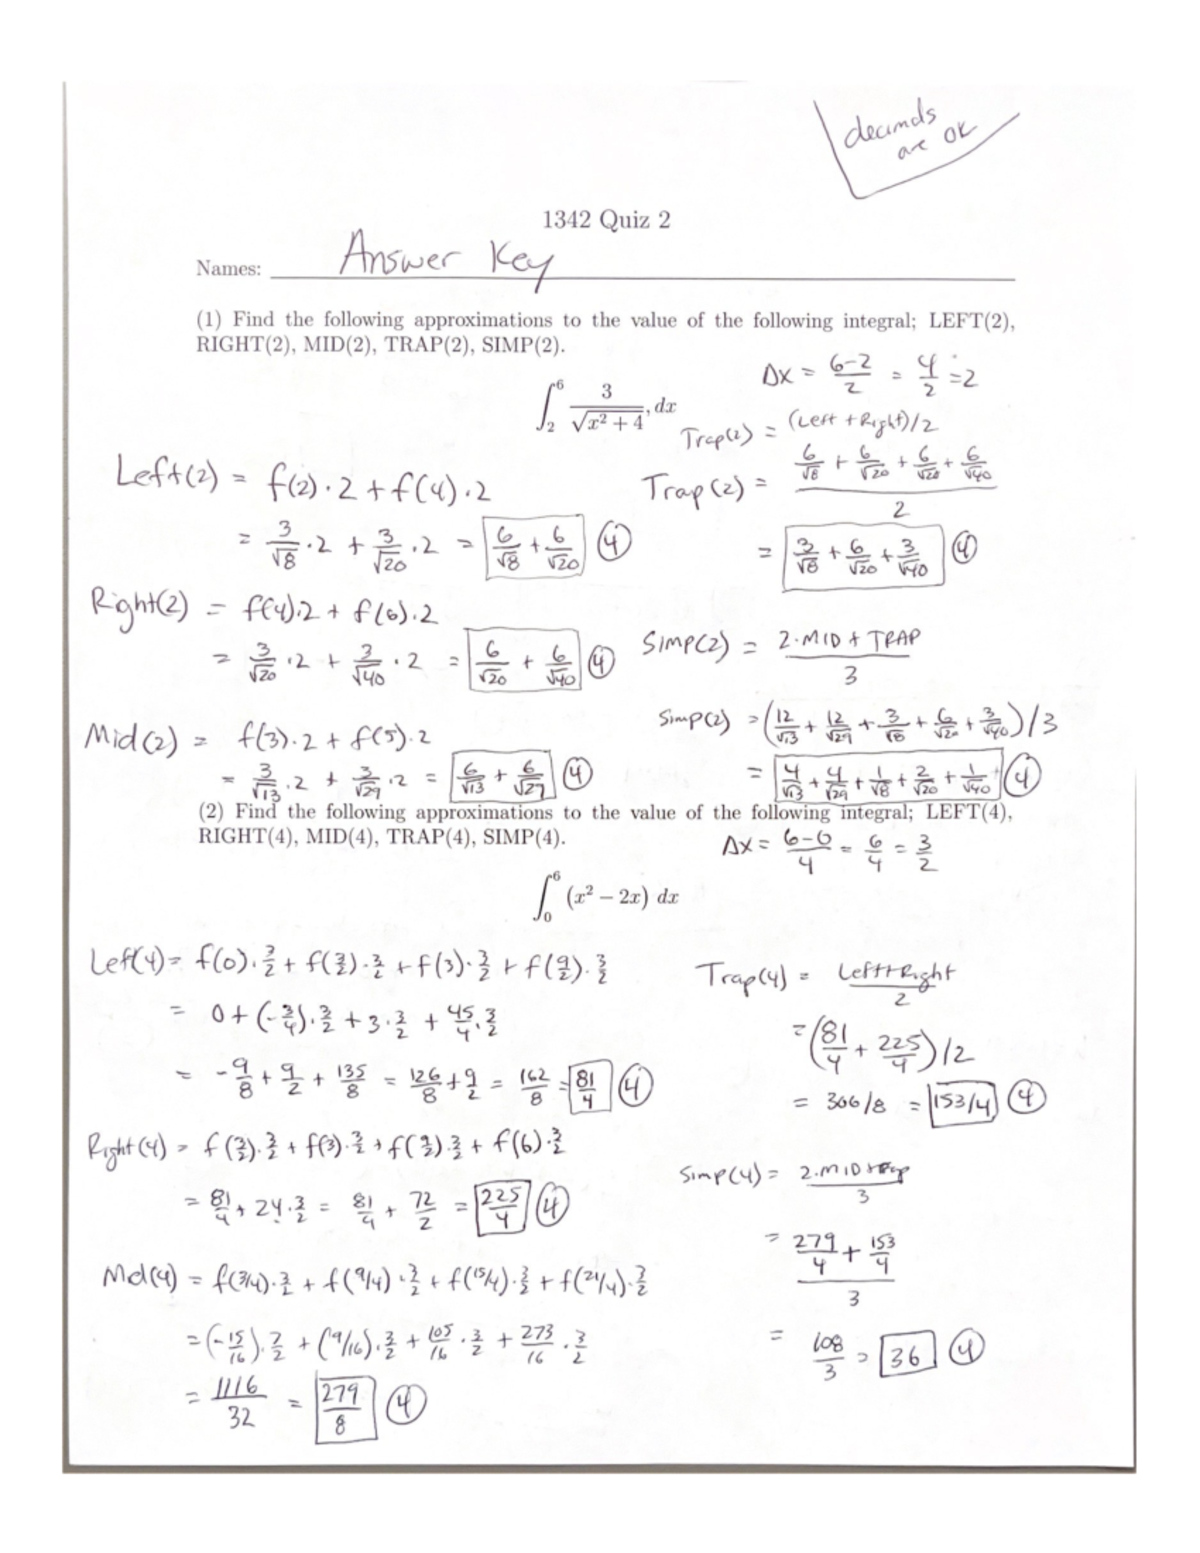 decimals
are OK
1342 Quiz 2
Names: Answer Key
(1) Find the following approximations to the value of the following integral; LEFT(2),
RIGHT(2), MID(2), TRAP(2), SIMP(2).
∫_2^6 3/√(x² + 4), dx
Δx = (6-2)/2 = 4/2 = 2
Trap(2) = (Left + Right)/2
Left(2) = f(2)·2 + f(4)·2
= 3/√8 ·2 + 3/√20 ·2 = 6/√8 + 6/√20 (4)
Trap(2) = (6/√8 + 6/√20 + 6/√20 + 6/√40)/2
= 3/√8 + 6/√20 + 3/√40 (4)
Right(2) = f(4)·2 + f(6)·2
= 3/√20 ·2 + 3/√40 ·2 = 6/√20 + 6/√40 (4)
Simp(2) = (2·MID + TRAP)/3
Mid(2) = f(3)·2 + f(5)·2
= 3/√13 ·2 + 3/√29 ·2 = 6/√13 + 6/√27 (4)
Simp(2) = (12/√13 + 12/√29 + 3/√8 + 6/√20 + 3/√40)/3
= 4/√13 + 4/√29 + 1/√8 + 2/√20 + 1/√40 (4)
(2) Find the following approximations to the value of the following integral; LEFT(4),
RIGHT(4), MID(4), TRAP(4), SIMP(4).
Δx = (6-0)/4 = 6/4 = 3/2
∫_0^6 (x² − 2x) dx
Left(4) = f(0)·3/2 + f(3/2)·3/2 + f(3)·3/2 + f(9/2)·3/2
= 0 + (-3/4)·3/2 + 3·3/2 + 45/4·3/2
= -9/8 + 9/2 + 135/8 = 126/8 + 9/2 = 162/8 = 81/4 (4)
Trap(4) = (Left+Right)/2
= (81/4 + 225/4)/2
= 306/8 = 153/4 (4)
Right(4) = f(3/2)·3/2 + f(3)·3/2 + f(9/2)·3/2 + f(6)·3/2
= 81/4 + 24·3/2 = 81/4 + 72/2 = 225/4 (4)
Simp(4) = (2·MID+Trap)/3
= (279/4 + 153/4)/3
= 108/3 = 36 (4)
Mid(4) = f(3/4)·3/2 + f(9/4)·3/2 + f(15/4)·3/2 + f(21/4)·3/2
= (-15/16)·3/2 + (9/16)·3/2 + 105/16·3/2 + 273/16·3/2
= 1116/32 = 279/8 (4)